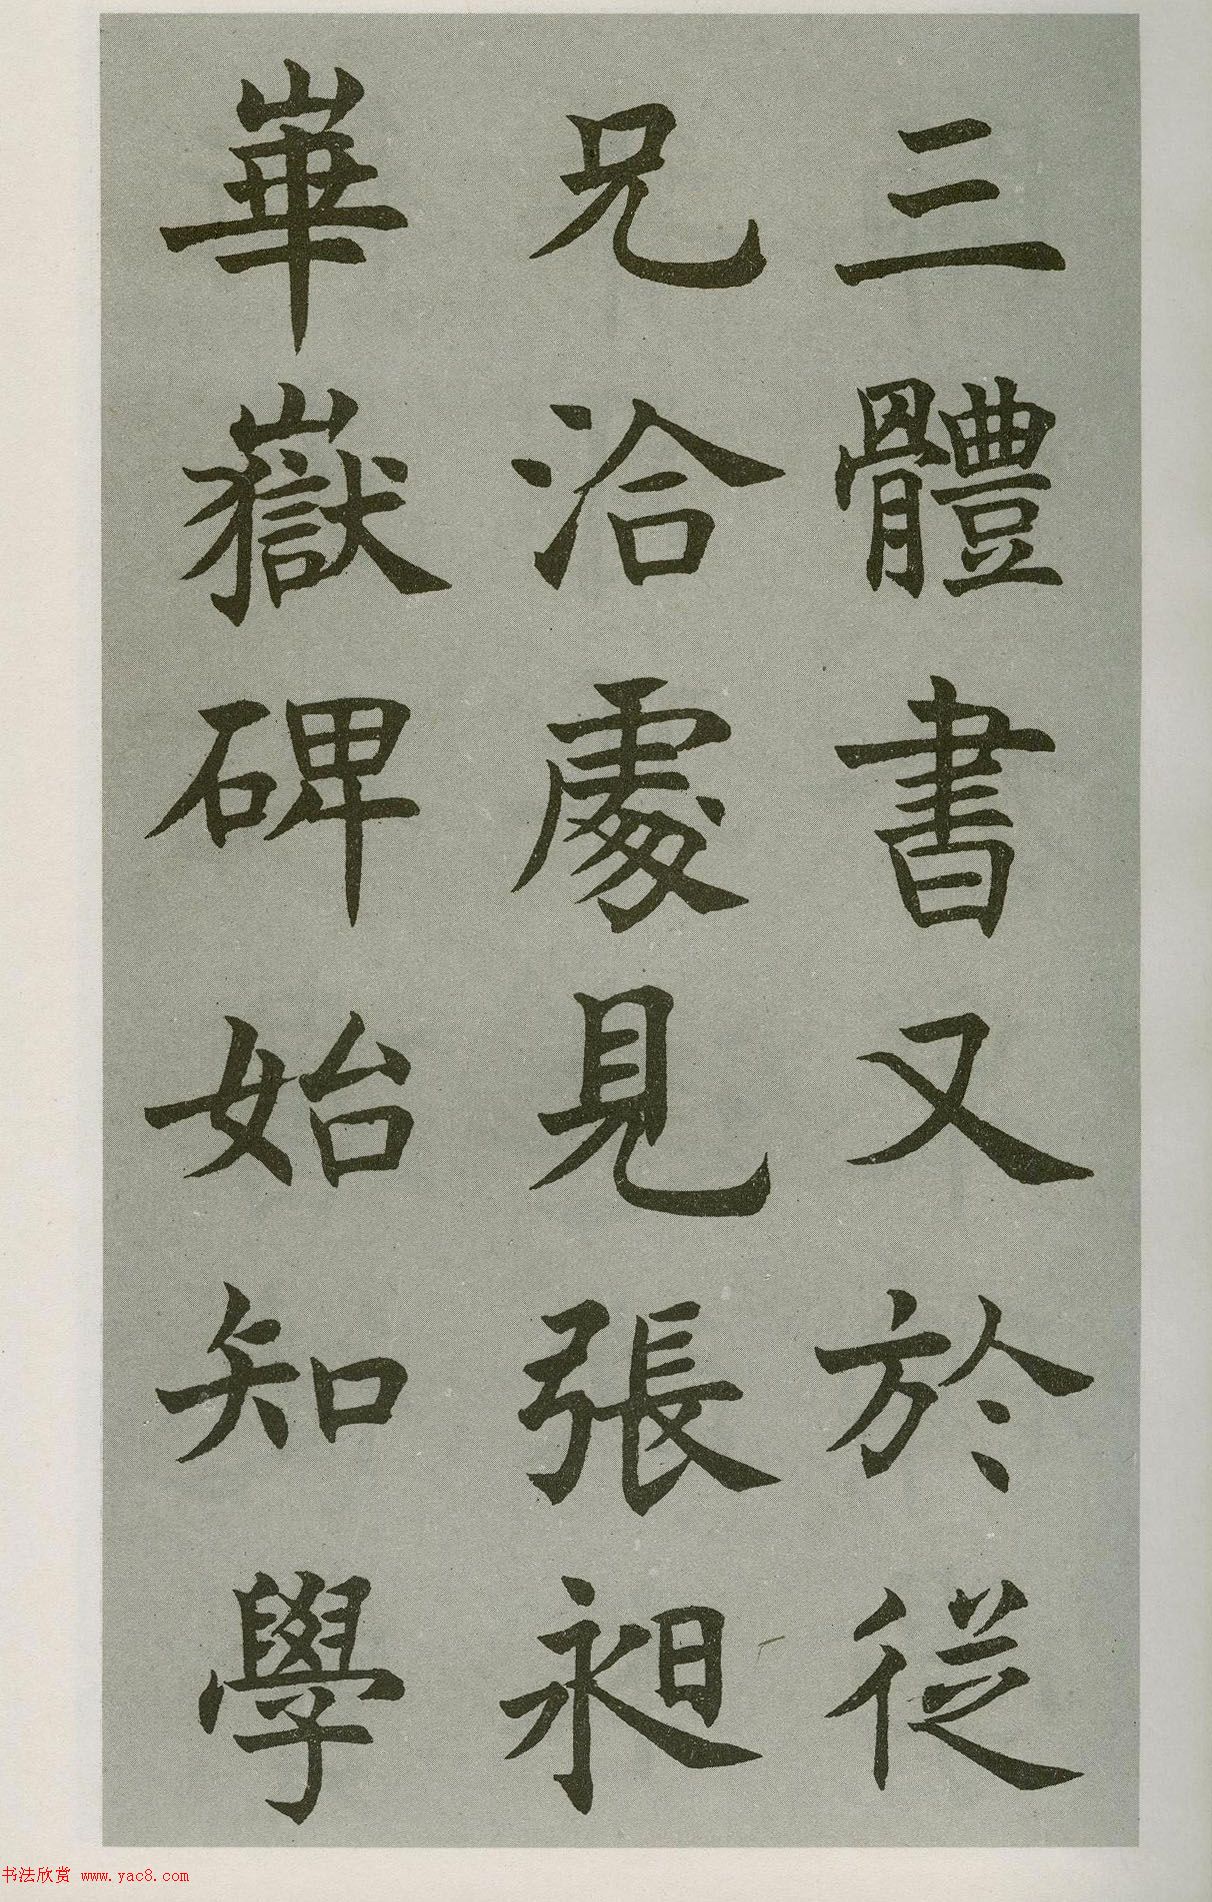 三體書又於從
兄洽處見張昶
崋嶽碑始知學
书法欣赏 www.yac8.com